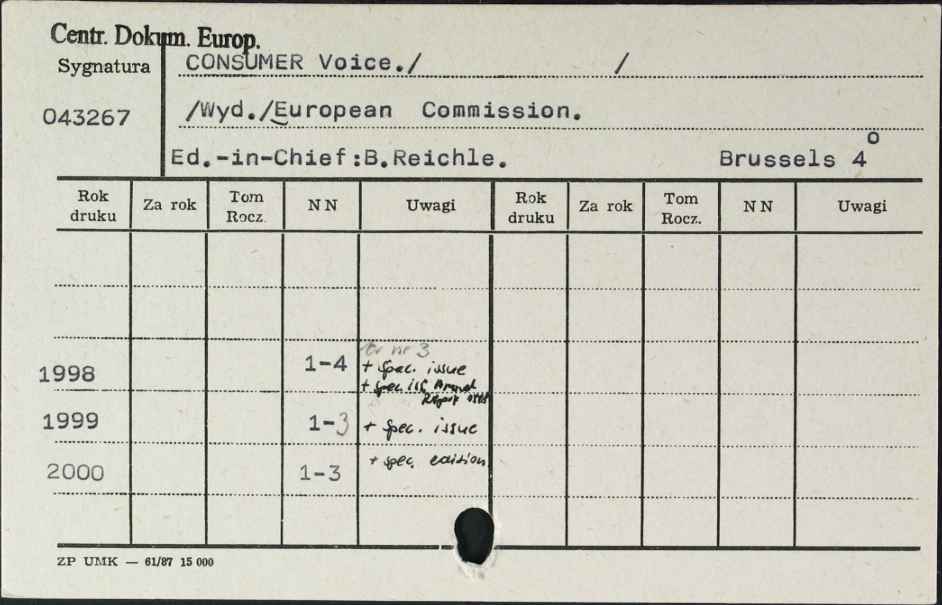 Centr. Dokum. Europ.
Sygnatura CONSUMER Voice./ /
043267 /Wyd./European Commission.
Ed.-in-Chief:B.Reichle. Brussels 4°
Rok druku Za rok Tom Rocz. NN Uwagi Rok druku Za rok Tom Rocz. NN Uwagi
nr 3
1998 1-4 + spec. issue
+ spec. iss.
1999 1-3 + spec. issue
2000 1-3 + spec. edition
ZP UMK — 61/87 15 000